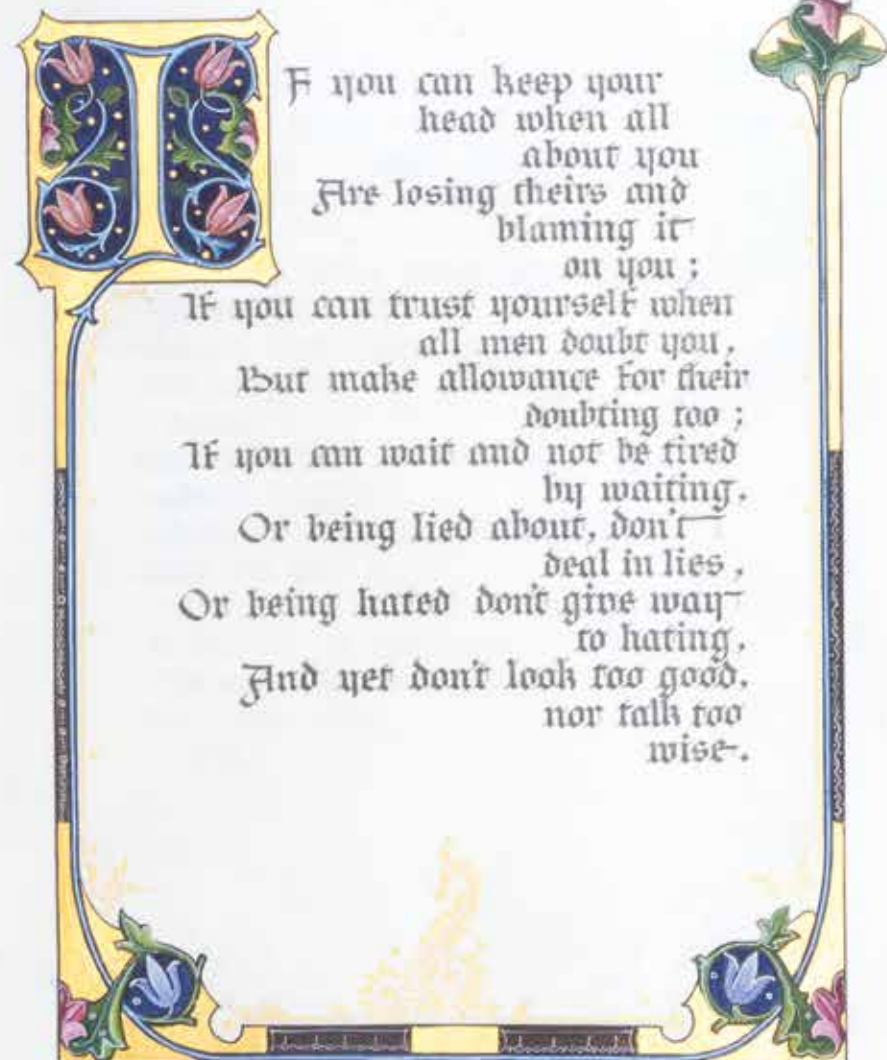 IF you can keep your
head when all
about you
Are losing theirs and
blaming it
on you ;
If you can trust yourself when
all men doubt you,
But make allowance for their
doubting too ;
If you can wait and not be tired
by waiting,
Or being lied about, don't
deal in lies,
Or being hated don't give way
to hating,
And yet don't look too good,
nor talk too
wise.